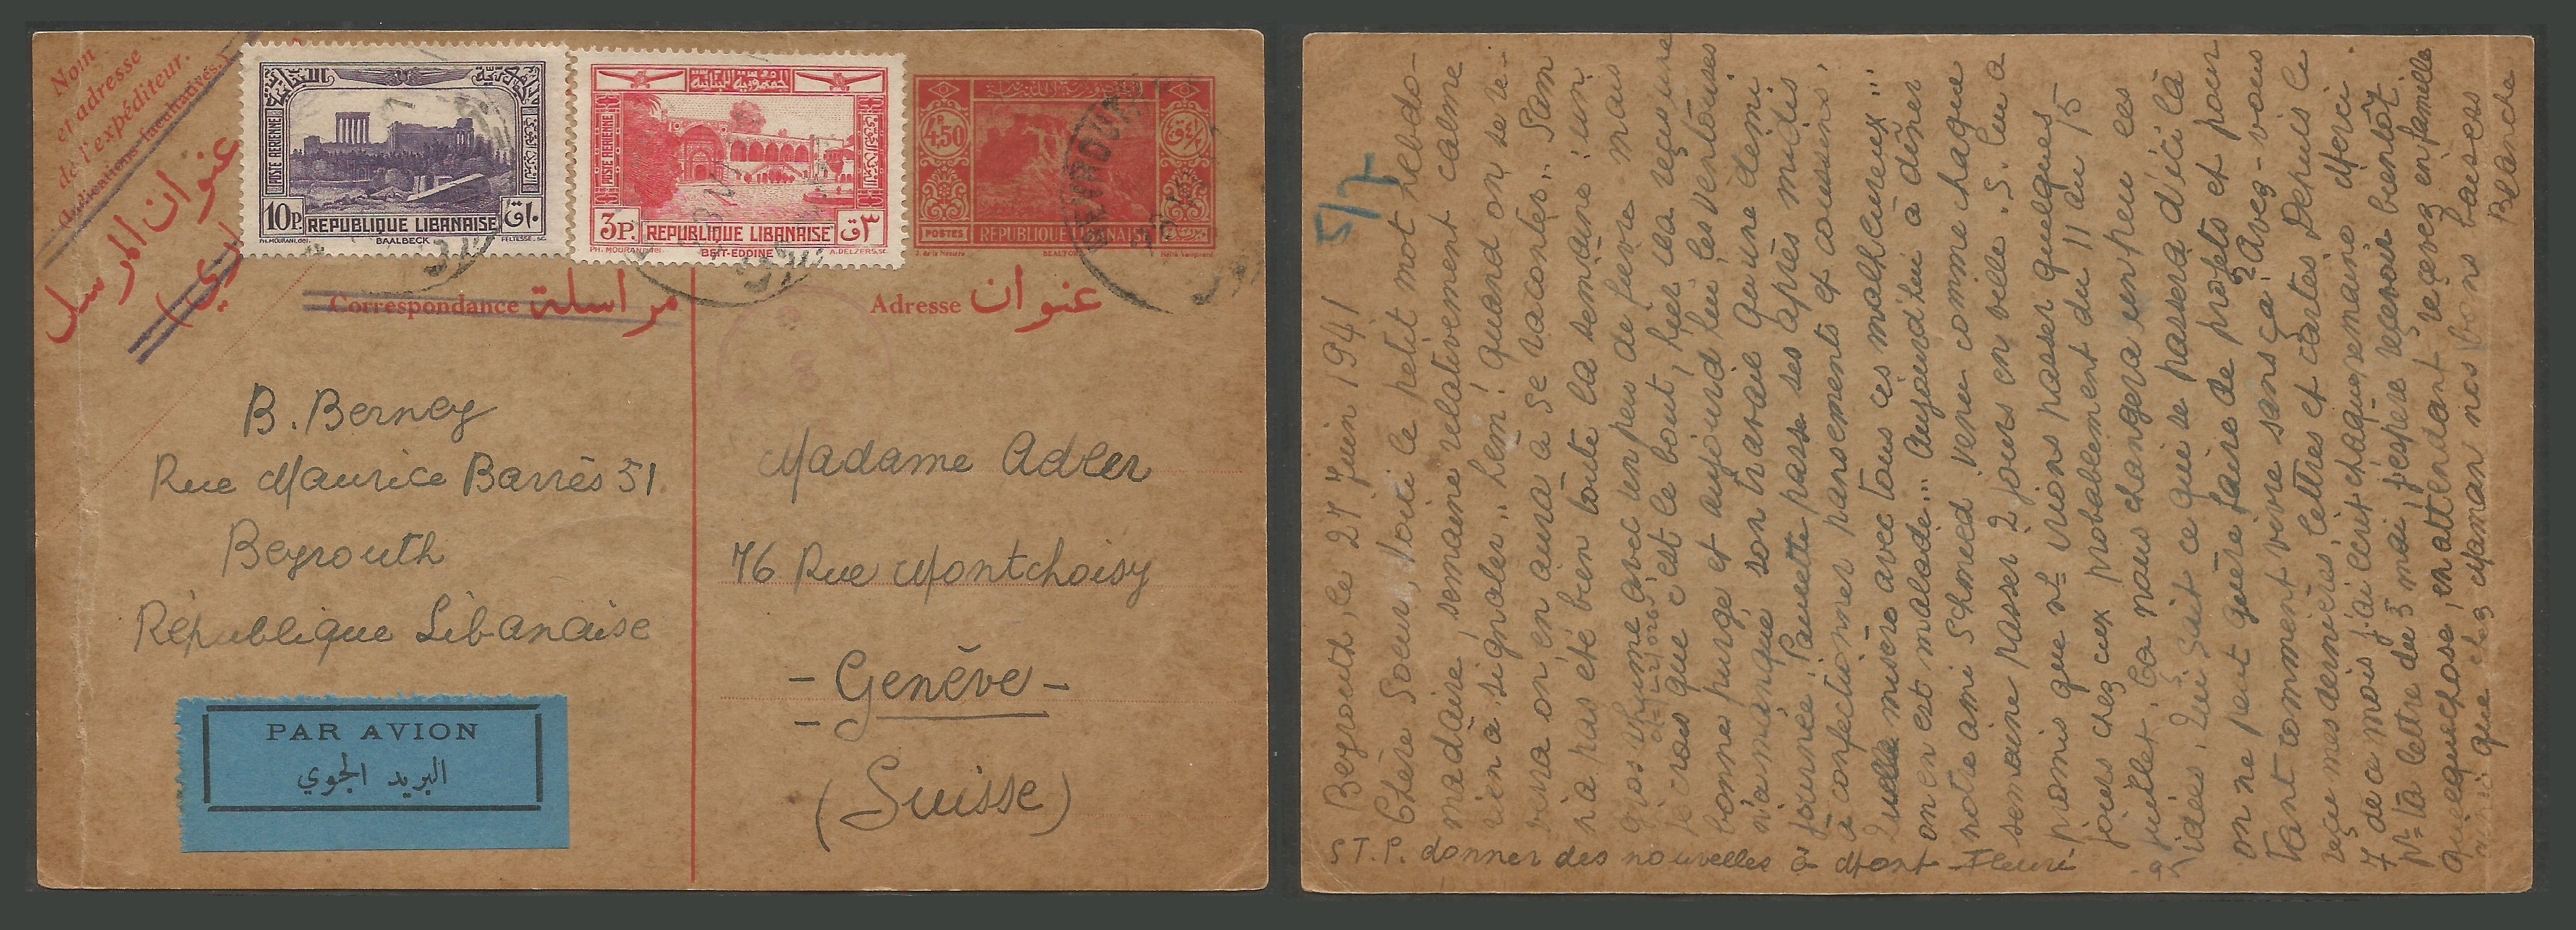 Nom
et adresse
de l'expéditeur.
(Indications facultatives)
عنوان المرسل
POSTE AERIENNE
10P.
REPUBLIQUE LIBANAISE
ق١٠
PH. MOURANI. del.
BAALBECK
FELTESSE. sc.
الجمهورية اللبنانية
POSTE AERIENNE
3P.
REPUBLIQUE LIBANAISE
ق٣
PH. MOURANI del.
BEIT-EDDINE
A. DELZERS. sc.
4P,50
POSTES
REPUBLIQUE LIBANAISE
BEYROUTH
Correspondance مراسلة
Adresse عنوان
B. Berney
Rue Maurice Barrès 51
Beyrouth
République Libanaise
PAR AVION
البريد الجوي
Madame Adler
76 Rue Montchoisy
- Genève -
(Suisse)
5/7
Beyrouth, ce 27 Juin 1941
Chère Soeur, Voici le petit mot hebdo-
madaire, semaine relativement calme
rien à signaler.. hem! quand on se re-
verra on en aura à se raconter.. Sam
n'a pas été bien toute la semaine: un
gros rhume avec un peu de fièvre mais
je crois que c'est le bout, hier il a reçu une
bonne purge et aujourd'hui les ventouses
n'a manqué son travail qu'une demi
journée. Paulette passe ses après midis
à confectionner pansements et coussins,
quelle misère avec tous ces malheureux...
on en est malade... Aujourd'hui à dîner
notre ami Schmied venu comme chaque
semaine passer 2 jours en ville. S. lui a
promis que ns irions passer quelques
jours chez eux probablement du 11 au 15
juillet. Ca nous changera un peu les
idées. Qui sait ce qui se passera d'ici là
on ne peut guère faire de projets et pour
tant comment vivre sans ça? Avez-vous
reçu mes dernières lettres et cartes. Depuis le
7 de ce mois j'ai écrit chaque semaine. Merci
pr ta lettre du 5 mai, j'espère recevoir bientôt
quelque chose, en attendant recevez en famille
ainsi que chez Maman nos bons baisers
Blanche
S.T.P. donner des nouvelles à Mont-Fleuri